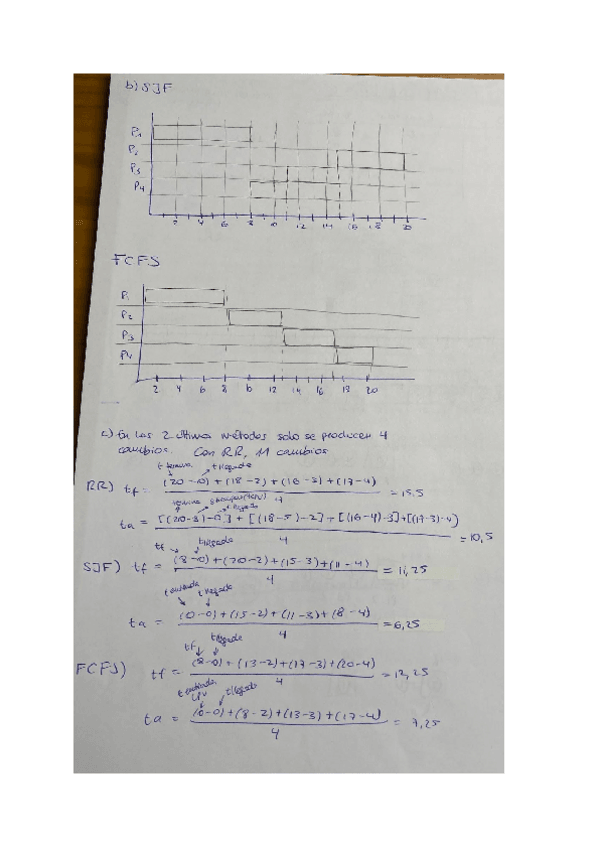 b) SJF
P1
P2
P3
P4
2 4 6 8 10 12 14 16 18 20
FCFS
P1
P2
P3
P4
2 4 6 8 10 12 14 16 18 20
c) En los 2 últimos métodos solo se producen 4
cambios. Con RR, 11 cambios
t termina t llegada
RR) tf = (20-0)+(18-2)+(16-3)+(17-4) / 4 = 15.5
ta = [(20-8)-0]+[(18-5)-2]+[(16-4)-3]+[(17-3)-4) / 4 = 10,5
tf t llegada
SJF) tf = (8-0)+(20-2)+(15-3)+(11-4) / 4 = 11,25
t entrada t llegada
ta = (0-0)+(15-2)+(11-3)+(8-4) / 4 = 6,25
tf t llegada
FCFS) tf = (8-0)+(13-2)+(17-3)+(20-4) / 4 = 12,25
t entrada CPU t llegada
ta = (0-0)+(8-2)+(13-3)+(17-4) / 4 = 7,25